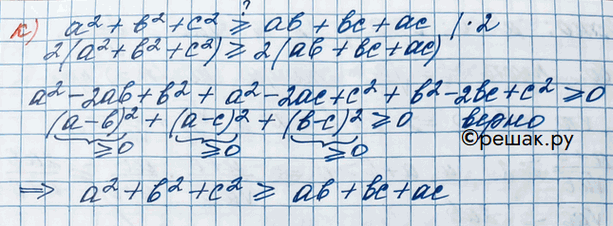 к) a² + в² + c² ≥? aв + вc + ac | · 2
2(a² + в² + c²) ≥ 2(aв + вc + ac)
a² - 2aв + в² + a² - 2ac + c² + в² - 2вc + c² ≥ 0
(a-в)² + (a-c)² + (в-c)² ≥ 0 верно
≥0 ≥0 ≥0 ©решак.ру
⇒ a² + в² + c² ≥ aв + вc + ac